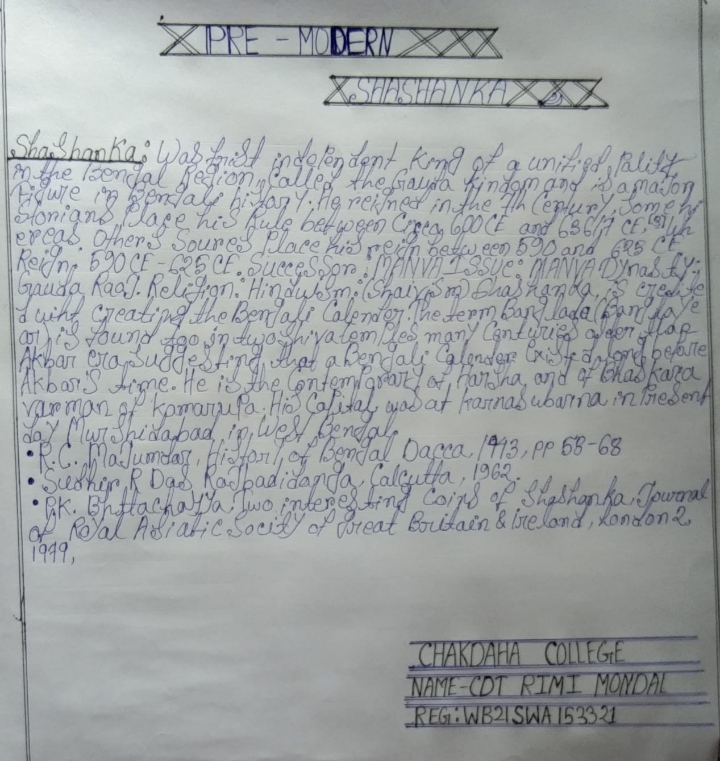 PRE - MODERN
SHASHANKA
Shashanka: Was frist indopendent King of a unified Pality
in the Bengal Region, Called the Gauda Kindom and is a major
Figure in Bengali history. He reigned in the 7th Century, Some hi
storians Place his Rule between Circa 600 CE and 636/7 CE, wh
ereas Others Sources Place his reign between 590 and 625 CE
Reign: 590 CE - 625 CE. Successor: MANVA ISSUE: MANVA Dynasty:
Gauda Raaj. Religion: Hinduism: (Shaivism) Shashanka, is credite
d with creating the Bengali Calender. The term Bangladda (Bangla ye
ar) is found too in two Shiva temples many Centuries older than
Akbar era, Suggesting that a Bengali Calender Existed long before
Akbar's time. He is the Contemporary of Harsha and of Bhaskara
varman of Kamarupa. His Capital was at Karnasubarna in Present
day Murshidabad in West Bengal.
• R.C. Majumdar, History of Bengal Dacca, 1943, PP 58-68
• Sudhir R Das Rajbadidanga, Calcutta, 1962.
• P.K. Bhttachayya. Two interesting Coins of Shashanka. Journal
of Royal Asiatic Socity of Great Britain & Ireland, London 2
1979,
CHAKDAHA COLLEGE
NAME-CDT RIMI MONDAL
REG:WB21SWA153321